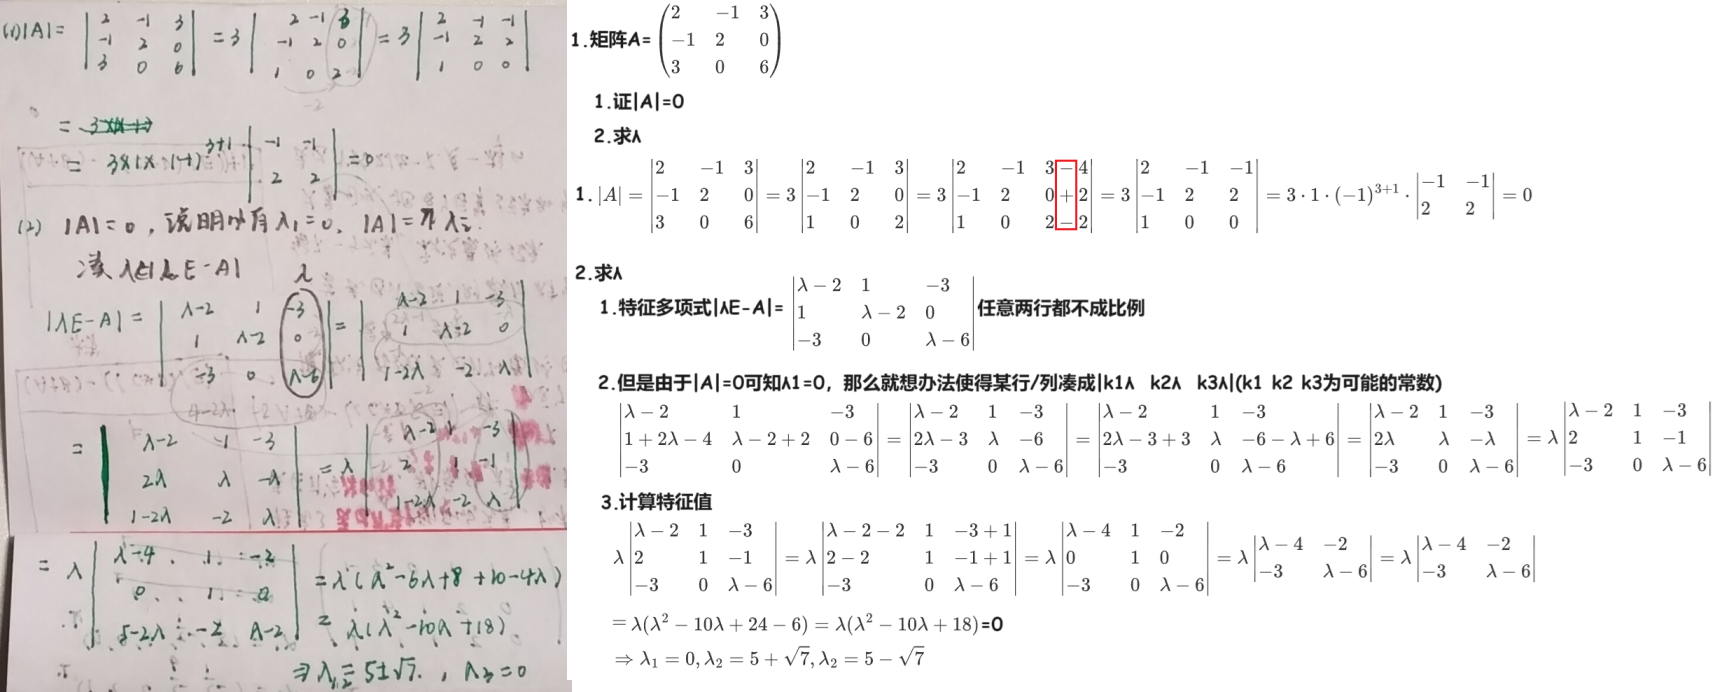 (1)|A|= |2 -1 3; -1 2 0; 3 0 6| =3 |2 -1 3; -1 2 0; 1 0 2| =3 |2 -1 -1; -1 2 2; 1 0 0|
-2
= 3×1×(-1)^{3+1} |-1 -1; 2 2| =0
(2) |A|=0, 说明必有λ₁=0, |A|=πλᵢ.
凑 |λE-A|
λ
|λE-A|= |λ-2 1 -3; 1 λ-2 0; -3 0 λ-6| = |λ-2 1 -3; 1 λ-2 0; 1-2λ -2 λ|
4-2λ -2
= |λ-2 -1 -3; 2λ λ -λ; 1-2λ -2 λ| =λ |λ-2 1 -3; 2 1 -1; 1-2λ -2 λ|
= λ |λ-4 1 -2; 0 1 0; 5-2λ -2 λ-2| =λ(λ²-6λ+8+10-4λ)
= λ(λ²-10λ+18)
⇒λ₁,₂=5±√7, λ₃=0
1.矩阵A= (2 -1 3; -1 2 0; 3 0 6)
1.证|A|=0
2.求λ
1. |A| = |2 -1 3; -1 2 0; 3 0 6| = 3 |2 -1 3; -1 2 0; 1 0 2| = 3 |2 -1 3-4; -1 2 0+2; 1 0 2-2| = 3 |2 -1 -1; -1 2 2; 1 0 0| = 3·1·(-1)^{3+1}· |-1 -1; 2 2| = 0
2.求λ
1.特征多项式|λE-A|= |λ-2 1 -3; 1 λ-2 0; -3 0 λ-6| 任意两行都不成比例
2.但是由于|A|=0可知λ1=0，那么就想办法使得某行/列凑成|k1λ k2λ k3λ|(k1 k2 k3为可能的常数)
|λ-2 1 -3; 1+2λ-4 λ-2+2 0-6; -3 0 λ-6| = |λ-2 1 -3; 2λ-3 λ -6; -3 0 λ-6| = |λ-2 1 -3; 2λ-3+3 λ -6-λ+6; -3 0 λ-6| = |λ-2 1 -3; 2λ λ -λ; -3 0 λ-6| = λ |λ-2 1 -3; 2 1 -1; -3 0 λ-6|
3.计算特征值
λ |λ-2 1 -3; 2 1 -1; -3 0 λ-6| = λ |λ-2-2 1 -3+1; 2-2 1 -1+1; -3 0 λ-6| = λ |λ-4 1 -2; 0 1 0; -3 0 λ-6| = λ |λ-4 -2; -3 λ-6| = λ |λ-4 -2; -3 λ-6|
= λ(λ²-10λ+24-6) = λ(λ²-10λ+18)=0
⇒ λ₁ = 0, λ₂ = 5+√7, λ₂ = 5-√7